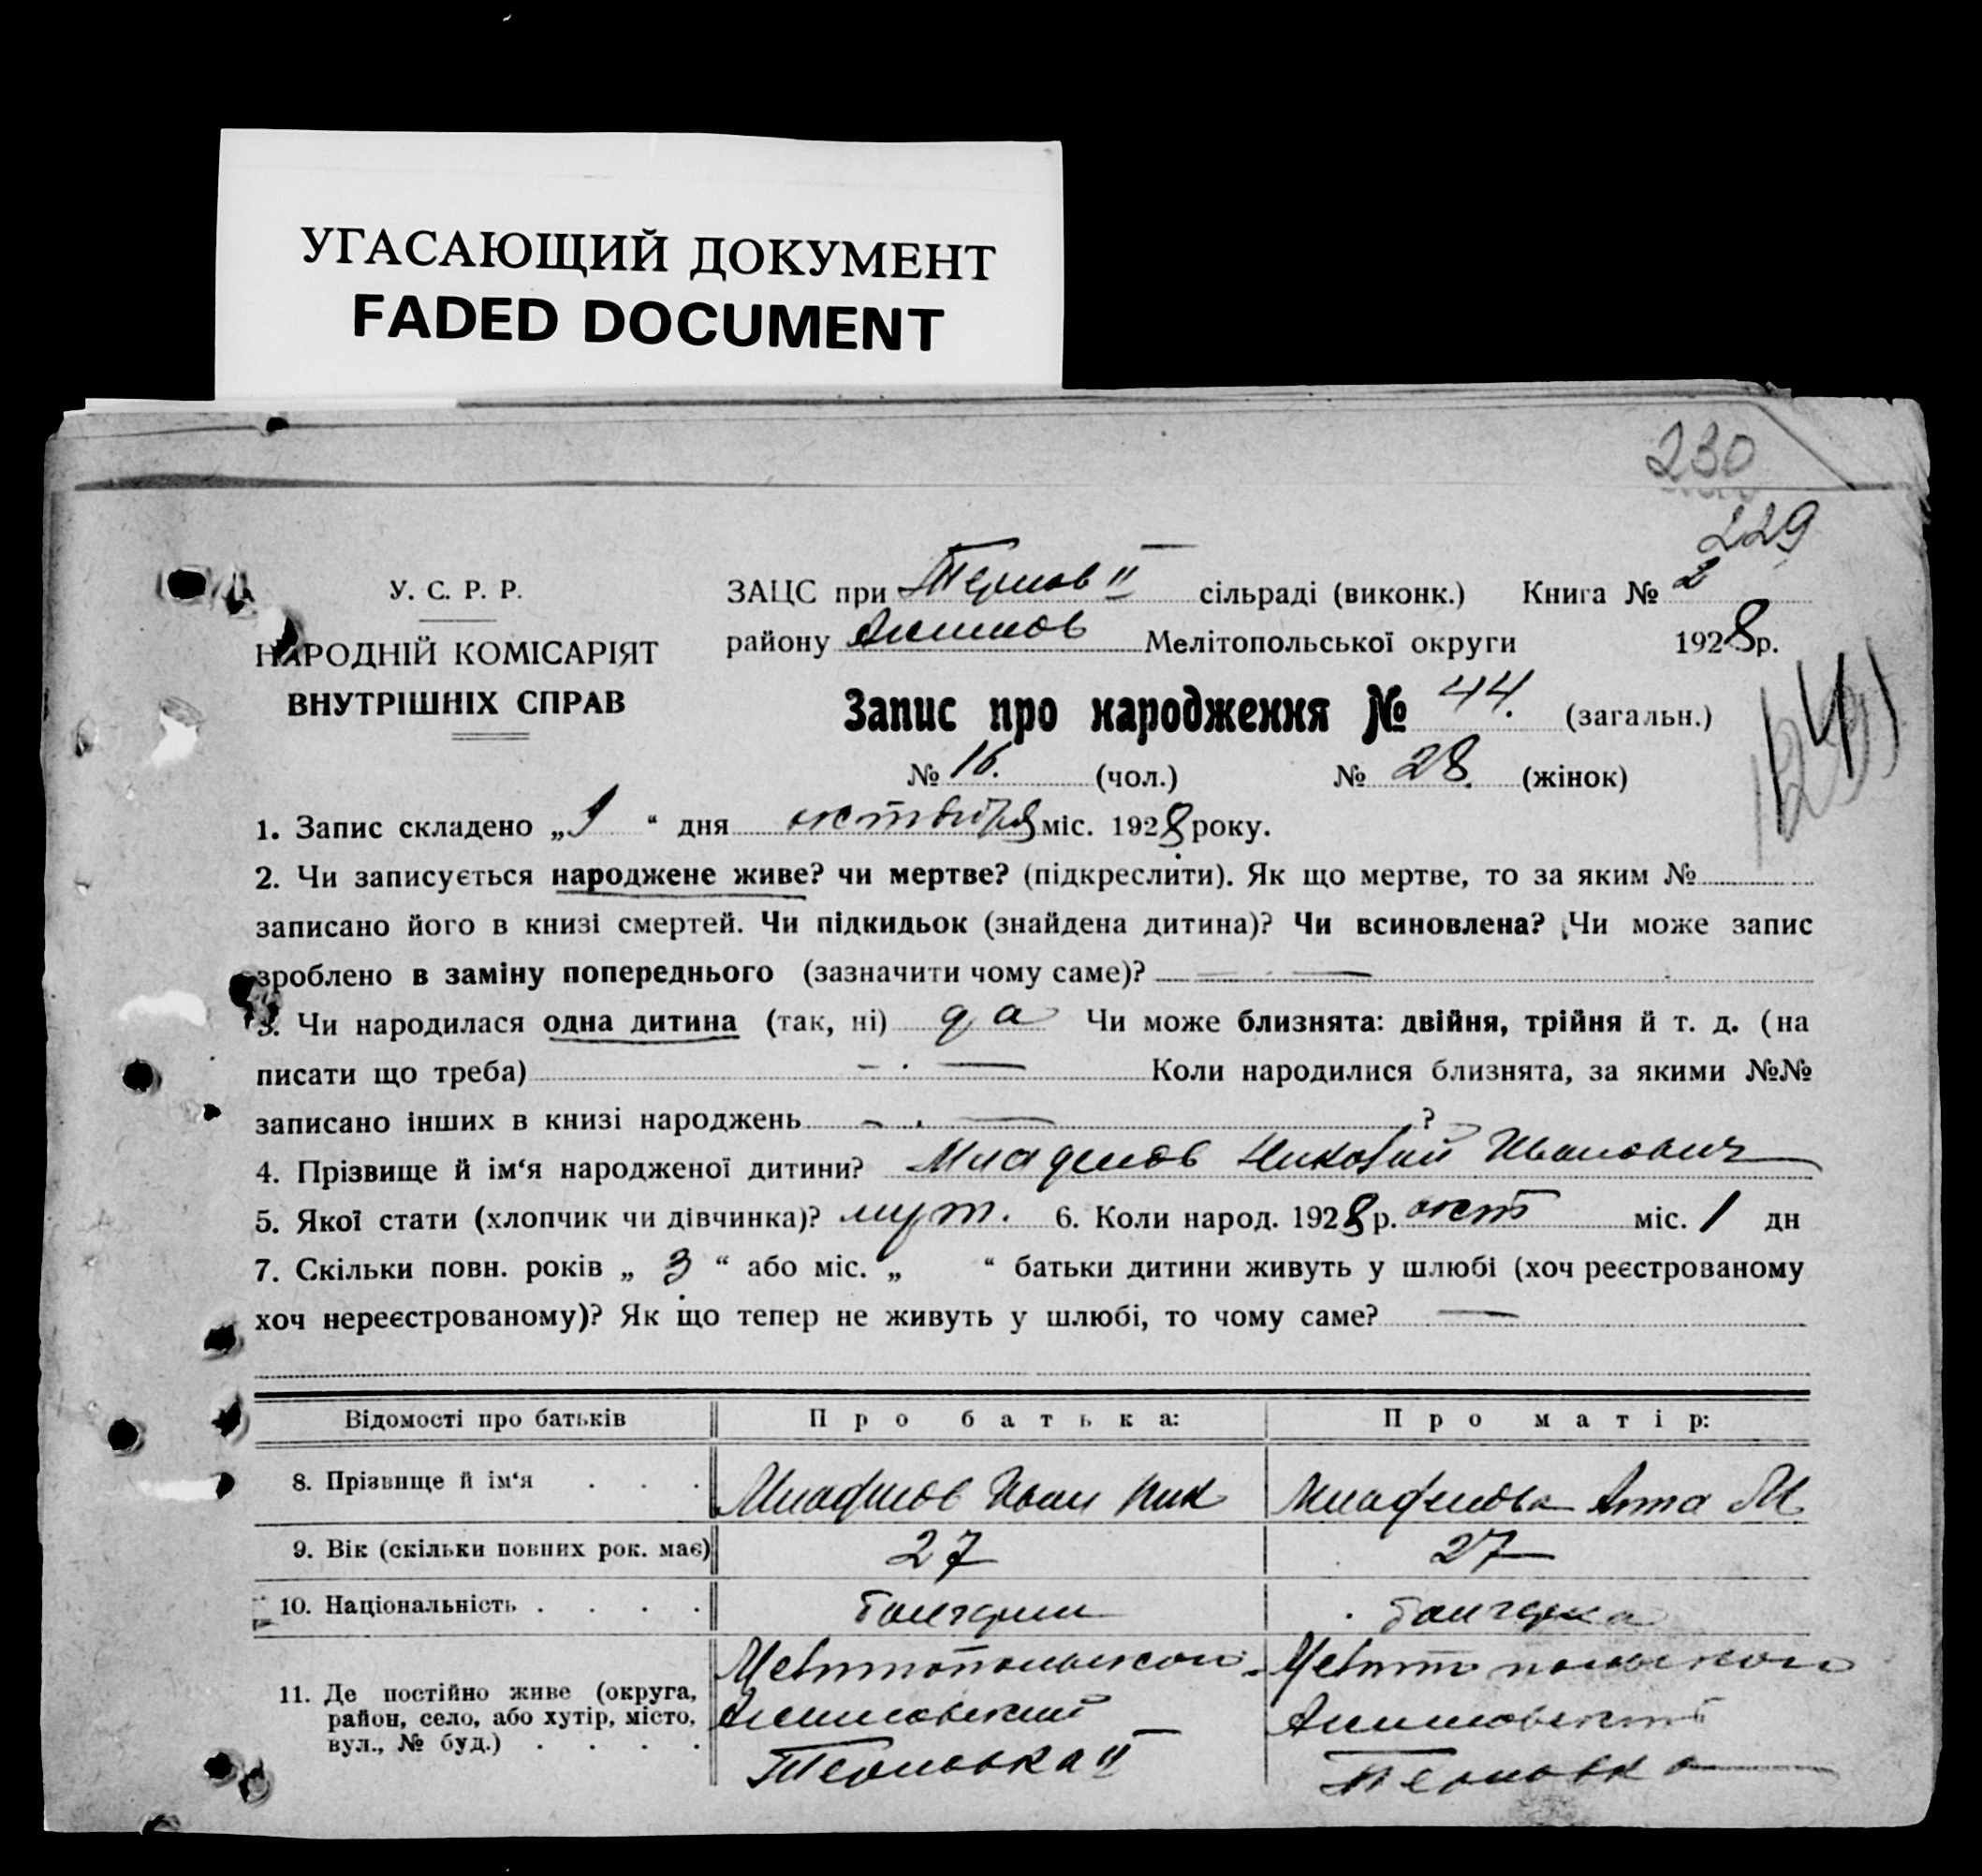 УГАСАЮЩИЙ ДОКУМЕНТ
FADED DOCUMENT
230
229
У. С. Р. Р.
ЗАЦС при Тернов II сільраді (виконк.) Книга № 2
НАРОДНІЙ КОМІСАРІЯТ
ВНУТРІШНІХ СПРАВ
району Акимов Мелітопольської округи 1928 р.
Запис про народження № 44. (загальн.)
№ 16. (чол.) № 28. (жінок)
1. Запис складено „ “ дня октября міс. 1928 року.
2. Чи записується народжене живе? чи мертве? (підкреслити). Як що мертве, то за яким №
записано його в книзі смертей. Чи підкидьок (знайдена дитина)? Чи всиновлена? Чи може запис
зроблено в заміну попереднього (зазначити чому саме)? —
3. Чи народилася одна дитина (так, ні) да Чи може близнята: двійня, трійня й т. д. (на
писати що треба) — Коли народилися близнята, за якими №№
записано інших в книзі народжень — ?
4. Прізвище й ім‘я народженої дитини? Младенов Николай Иванович
5. Якої стати (хлопчик чи дівчинка)? муж. 6. Коли народ. 1928 р. окт міс. 1 дн
7. Скільки повн. років „ 3 “ або міс. „ “ батьки дитини живуть у шлюбі (хоч реєстрованому
хоч нереєстрованому)? Як що тепер не живуть у шлюбі, то чому саме? —
Відомості про батьків Про батька: Про матір:
8. Прізвище й ім‘я . . . Младенов Иван Ник Младенова Анна М
9. Вік (скільки повних рок. має) 27 27
10. Національність . . . . болгарин болгарка
11. Де постійно живе (округа,
район, село, або хутір, місто,
вул., № буд.) . . . .
Мелитопольской Мелитопольской
Акимовский Акимовский
Терновка II Терновка